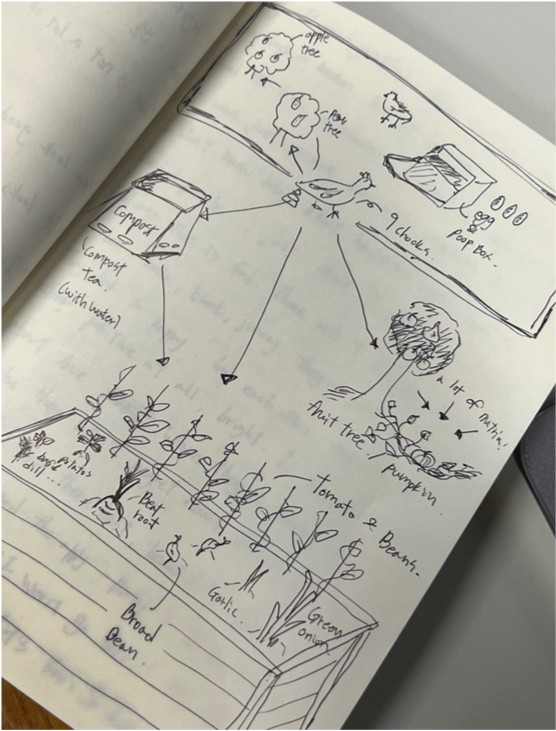 apple
tree
Pear
tree
egg
Poop Box.
9 chooks
Compost
Compost
Tea.
(with water)
a lot of nutria!
fruit tree
pumpkin.
Tomato & Beans.
potatos
dill...
Beet
root
Garlic.
Green
onion
Broad
Bean.